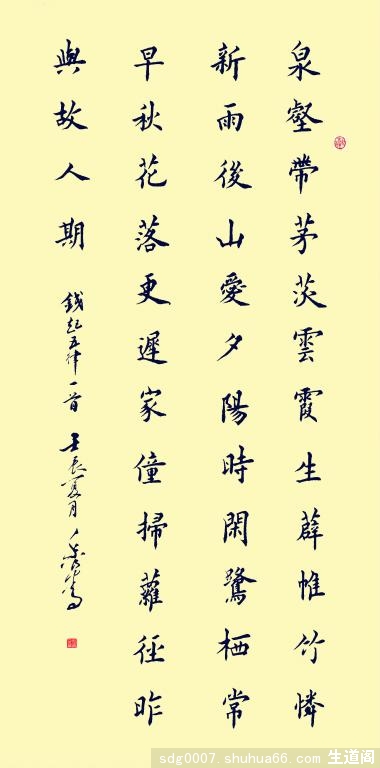 泉壑帶茅茨雲霞生薜帷竹憐
新雨後山愛夕陽時閑鷺栖常
早秋花落更遲家僮掃蘿徑昨
與故人期
錢起五律一首 壬辰夏月
sdg0007.shuhua66.com 生道阁